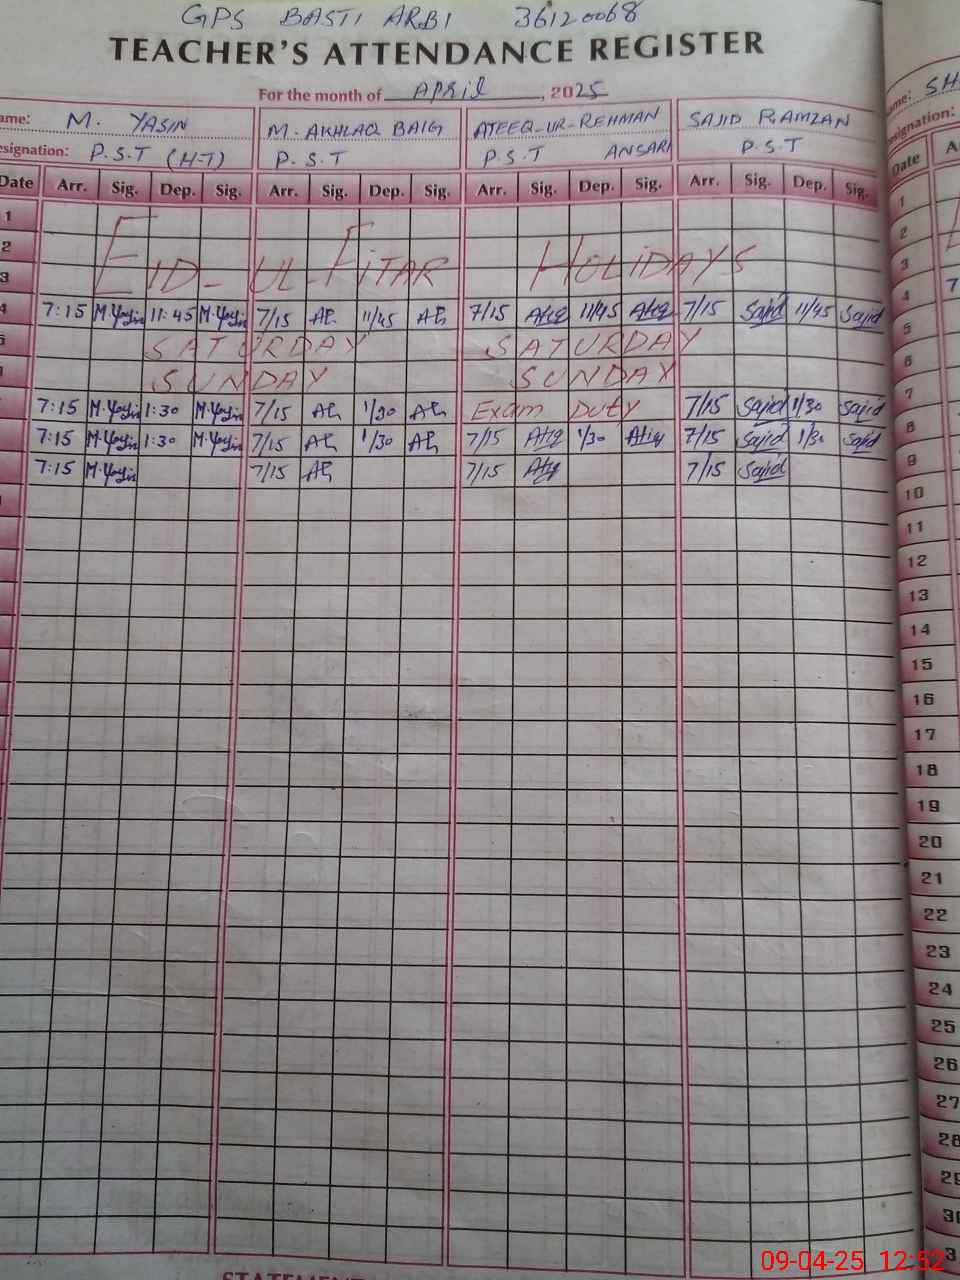 GPS BASTI ARBI 36120068
TEACHER'S ATTENDANCE REGISTER
For the month of April, 2025
ame: M. YASIN M. AKHLAQ BAIG ATEEQ-UR-REHMAN SAJID RAMZAN
esignation: P.S.T (H-T) P.S.T P.S.T ANSARI P.S.T
Date Arr. Sig. Dep. Sig. Arr. Sig. Dep. Sig. Arr. Sig. Dep. Sig. Arr. Sig. Dep. Sig.
1
2 EID-UL-FITAR HOLIDAYS
3
4 7:15 M.Yasin 11:45 M.Yasin 7/15 11/45 7/15 Atiq 11/45 Atiq 7/15 Sajid 11/45 Sajid
5 SATURDAY SATURDAY
SUNDAY SUNDAY
7:15 M.Yasin 1:30 M.Yasin 7/15 1/30 Exam Duty 7/15 Sajid 1/30 Sajid
7:15 M.Yasin 1:30 M.Yasin 7/15 1/30 7/15 Atiq 1/30 Atiq 7/15 Sajid 1/30 Sajid
7:15 M.Yasin 7/15 7/15 Atiq 7/15 Sajid
ame: SH
esignation:
Date A
1
2
3
4 7
5
6
7
8
9
10
11
12
13
14
15
16
17
18
19
20
21
22
23
24
25
26
27
28
29
30
3
09-04-25 12:52